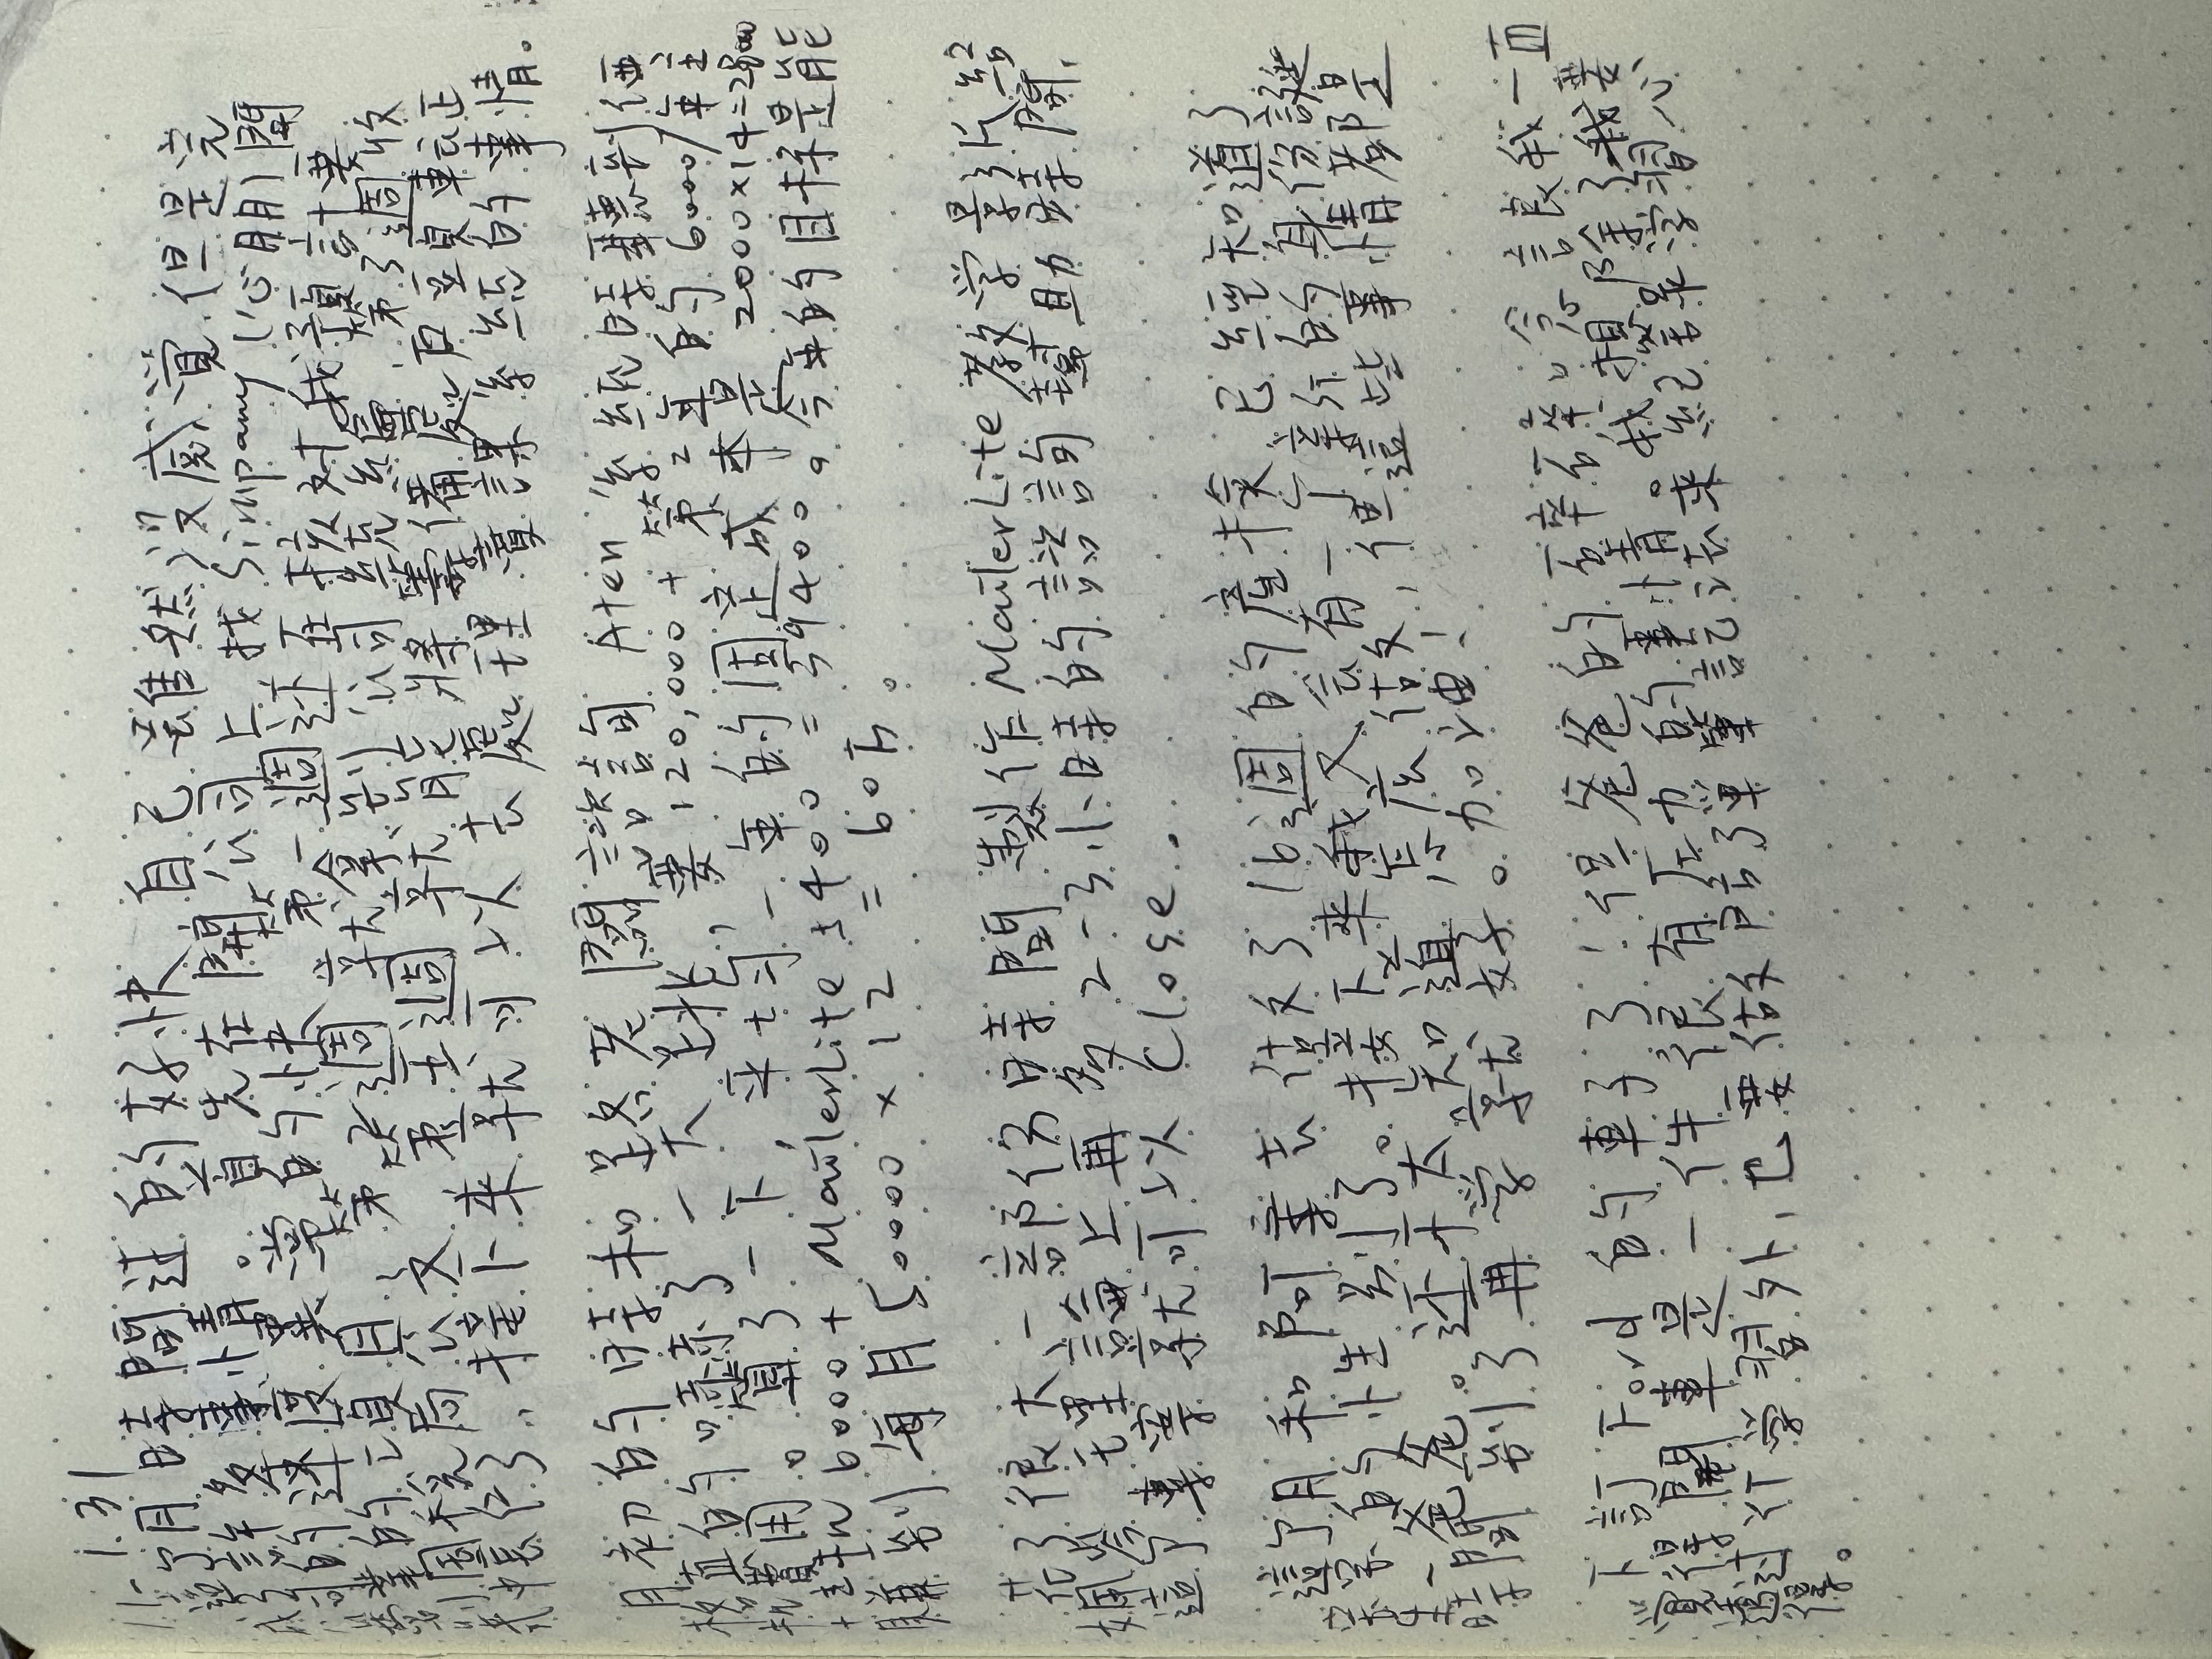 1.31
這個月時間过的好快,自己雖然没感覺,但是完
成了許多事情。首先在開公司上,找 Simpany(心朋)開
公司的速度異常的快,第一週还在核对我預計要
營業的項目,第2週就拿到公司統編,第3週收
到國稅局公文,第五週就能將籌備處戶頭轉正
式帳行了,接下來就可以去處理賣課系統的事情。
月初的時和路老闆諮詢 Aten 系統時聽到価
格真的嚇了一大跳,要120,000+第2年的6000/年主
机費用。算了一下,平均一年的固定成本是 2000×14=28000
+主机 6000 + MailerLite 5400 = 39400。今年的目標是能
賺到每月50000×12 = 60万。
花了很大一部份時間製作MailerLite教学影片給
姵岑,理論上再多2-3小時的諮詢幫助時間,
這个專案就可以 Close。
這个月和阿幸去做了16週的產檢,已經知道了
宝宝的性別了。接下來我又会有一个新的身份誕
生—爸爸。还不太知道怎麼做,但這些事情都是
時間到了再学就好。加油!
下訂 Ford 的車子了!但爸爸的碎碎唸讓我一直
覺得開車是一件很有压力的事情。我想除了我要
透过行学習外,也要做的子弹筆記法來紀錄学習心
得。